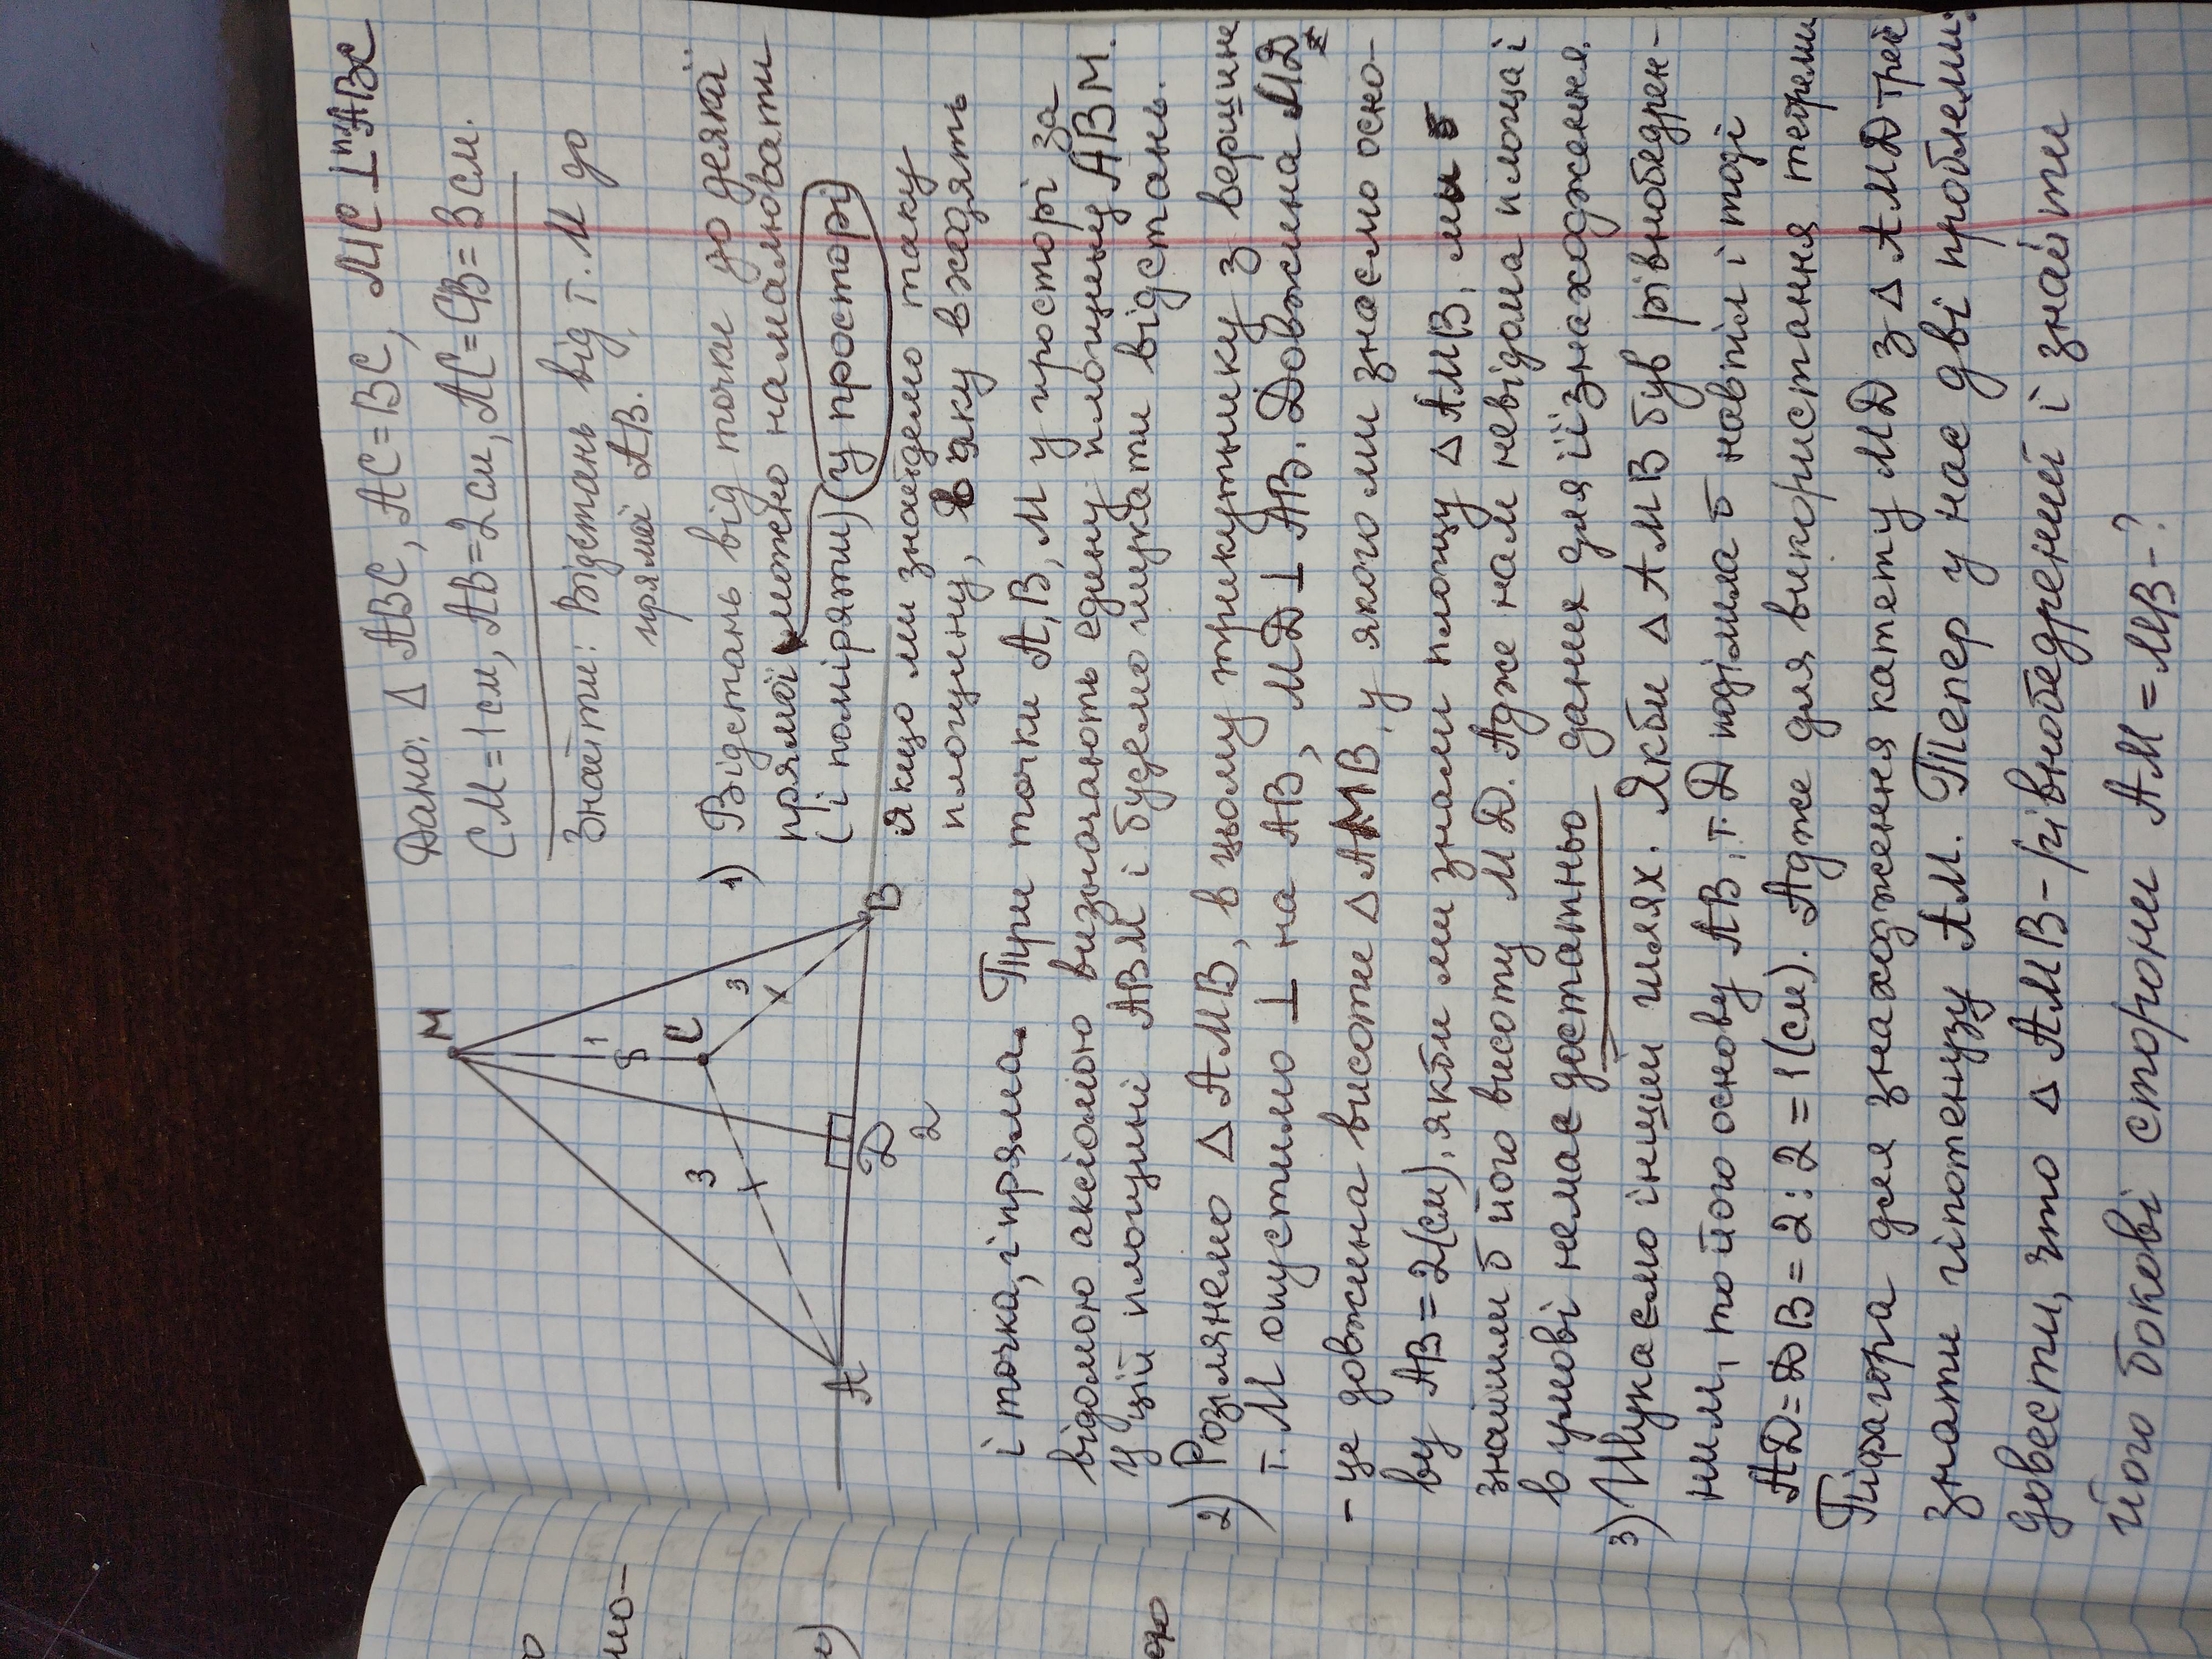 Дано: Δ АВС, АС=ВС, МС ⊥ пл АВС
СМ=1см, АВ=2см, АС=СВ=3см.
Знайти: Відстань від т. М до
прямої АВ.
М
1
8
3
С
3
А
Д
2
В
1) Відстань від точки до деякої
прямої можно намалювати
(і поміряти) (у просторі)
якщо ми знайдемо таку
площину, в яку входять
і точка, і пряма. Три точки А, В, М у просторі за
відомою аксіомою визначають едину площину АВМ.
У цій площині АВМ і будемо шукати відстань.
2) Розглянемо Δ АМВ, в цьому трикутнику з вершине
т. М опустимо ⊥ на АВ, МД ⊥ АВ. Довжина МД
- це довжина висоти Δ АМВ, у якого ми знаємо осно-
ву АВ=2(см), якби ми знали площу Δ АМВ, ми б
знайшли б його висоту МД. Адже нам невідома площа і
в умові немає достатньо даних для її знаходження.
3) Шукаємо інший шлях. Якби Δ АМВ був рівнобедрен-
ним, то його основу АВ, т. Д поділила б навпіл і тоді
АД=ДВ=2:2=1(см). Адже для використання теореми
Піфагора для знаходження катету МД з Δ АМД треб
знати гіпотенузу АМ. Тепер у нас дві проблеми:
довести, что Δ АМВ - рівнобедрений і знайти
його бокові сторони АМ=МВ-?
о
но-
ч)
ою